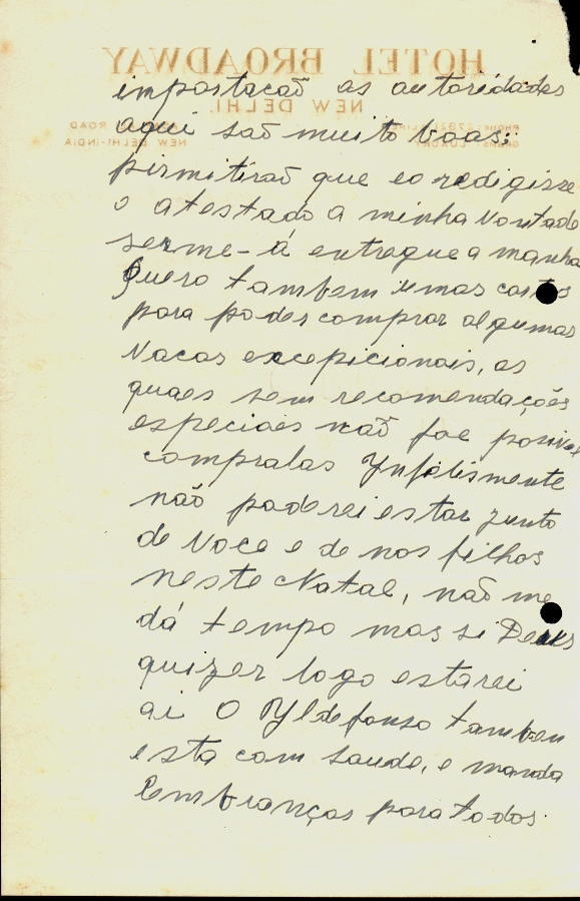 HOTEL BROADWAY
importacaõ as autoridades
NEW DELHI.
aqui saõ muito boas;
NEW DELHI-INDIA
pirmitiraõ que eo redigisse
o atestado a minha vontade
serme-á entregue a manha
Quero tambem umas cartas
para poder comprar algumas
Vacas excepicionais, as
quaes sem recomendações
especiaes naõ foe posivel
compralas Ynfilismente
não poderei estar junto
de Voce e de nos filhos
neste Natal, naõ me
dá tempo mas si Deus
quizer logo estarei
ai O Yldefonso tamben
esta com saude, e manda
lembranças para todos.